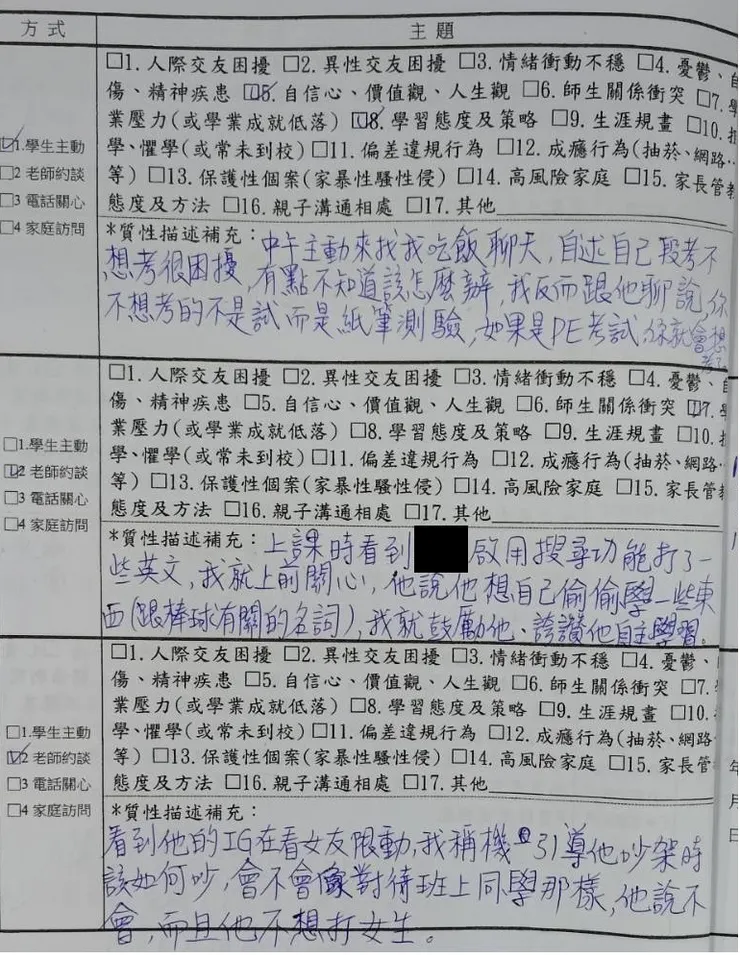 方式 主題
☑1.學生主動
□2 老師約談
□3 電話關心
□4 家庭訪問
□1.人際交友困擾 □2.異性交友困擾 □3.情緒衝動不穩 □4.憂鬱、自
傷、精神疾患 ☑5.自信心、價值觀、人生觀 □6.師生關係衝突 □7.學
業壓力(或學業成就低落) ☑8.學習態度及策略 □9.生涯規畫 □10.
學、懼學(或常未到校) □11.偏差違規行為 □12.成癮行為(抽菸、網路
等) □13.保護性個案(家暴性騷性侵) □14.高風險家庭 □15.家長管教
態度及方法 □16.親子溝通相處 □17.其他
*質性描述補充：中午主動來找我吃飯聊天，自述自己段考不
想考很困擾，有點不知道該怎麼辦，我反而跟他聊說，你
不想考的不是試而是紙筆測驗，如果是PE考試你就會想
考了
□1.學生主動
☑2 老師約談
□3 電話關心
□4 家庭訪問
□1.人際交友困擾 □2.異性交友困擾 □3.情緒衝動不穩 □4.憂鬱、自
傷、精神疾患 □5.自信心、價值觀、人生觀 □6.師生關係衝突 ☑7.學
業壓力(或學業成就低落) □8.學習態度及策略 □9.生涯規畫 □10.
學、懼學(或常未到校) □11.偏差違規行為 □12.成癮行為(抽菸、網路
等) □13.保護性個案(家暴性騷性侵) □14.高風險家庭 □15.家長管教
態度及方法 □16.親子溝通相處 □17.其他
*質性描述補充：上課時看到 啟用搜尋功能打了一
些英文，我就上前關心，他說他想自己偷偷學一些東
西(跟棒球有關的名詞)，我就鼓勵他、誇讚他自主學習。
□1.學生主動
☑2 老師約談
□3 電話關心
□4 家庭訪問
□1.人際交友困擾 □2.異性交友困擾 □3.情緒衝動不穩 □4.憂鬱、
傷、精神疾患 □5.自信心、價值觀、人生觀 □6.師生關係衝突 □7.
業壓力(或學業成就低落) □8.學習態度及策略 □9.生涯規畫 □10.
學、懼學(或常未到校) □11.偏差違規行為 □12.成癮行為(抽菸、網路
等) □13.保護性個案(家暴性騷性侵) □14.高風險家庭 □15.家長管
態度及方法 □16.親子溝通相處 □17.其他
*質性描述補充：
看到他的IG在看女友限動，我稍機引導他吵架時
該如何吵，會不會像對待班上同學那樣，他說不
會，而且他不想打女生。
年
月
日